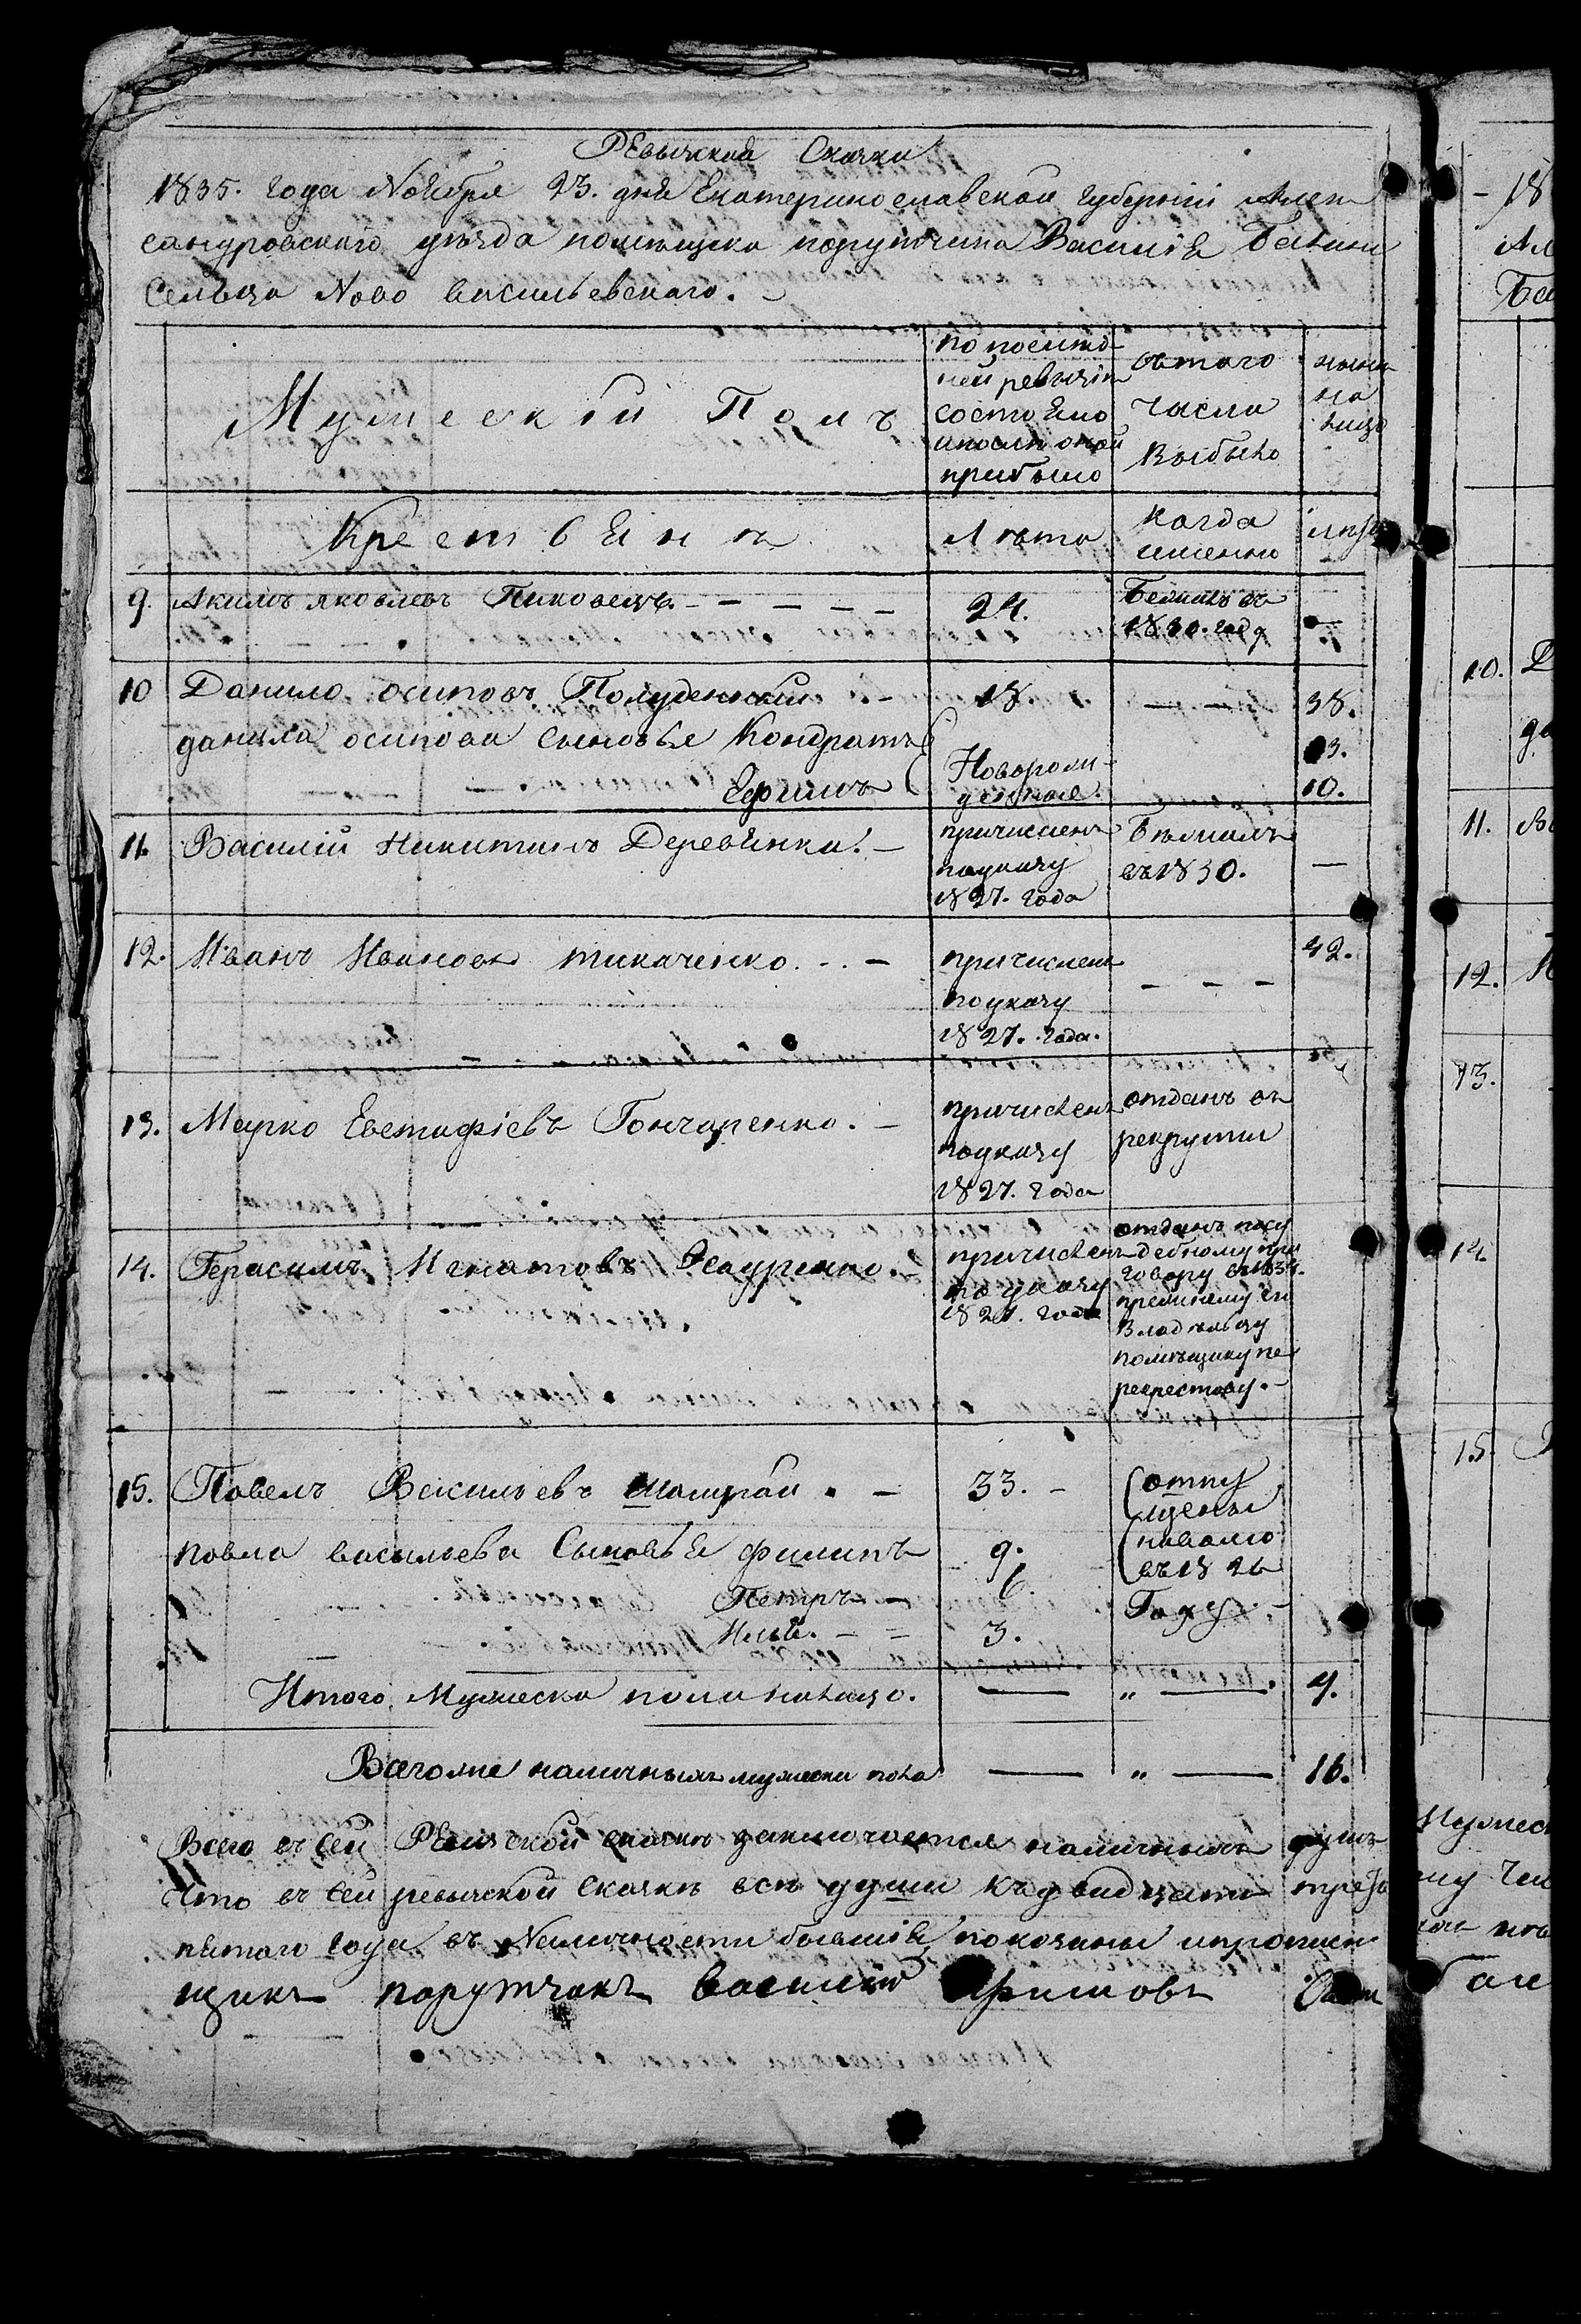 Ревизская Сказка
1835. года Ноября 23. дня Екатеринославской губерніи Алек
сандровскаго уезда помещика порутчика Василія
Сельца Ново Васильевскаго.
Мужескій Полъ
по послед
ней ревизіи
состояло
и после оной
прибыло
изътого
числа
выбыло
ныне
на
лицо
Крестьянъ
Лета
когда
именно
лета
9. Акимъ яковлевъ Пиковецъ. 24. Бежалъ въ 1830. году —
10 Данило осиповъ Полуденный 18. — — 38.
данила осипова сыновья Кондратъ 13.
Ефимъ Новорож-
денные. 10.
11. Василій Никитинъ Деревянка. —
причисленъ
поуказу
1827. года
Бежалъ
въ 1830.
—
12. Иванъ Ивановъ ткаченко. - . -
причисленъ
поуказу
1827. года.
- - -
42.
13. Марко Евстафіевъ Гончаренко. —
причисленъ
поуказу
1827. года
отданъ въ
рекруты
14. Герасимъ Игнатовъ
причисленъ
поуказу
1827. года
отданъ посу
дебному при
говору въ 1834.
прежнему его
Владельцу
помещику пе
рекрестову. -
15. Павелъ Васильевъ 33. -
павла васильева Сыновья филипъ 9.
Петръ — 6.
Илья. - = 3.
отпу
щены
наволю
въ 1826
Году. -
Итого Мужеска пола налицо. — „ — 4.
Всегоже наличныхъ мужеска пола — „ — 16.
Всего въ сей Ревизской сказке заключается наличныхъ душъ
Что въ сей ревизской Сказке все души къ двадцать трет
пятаго года въ Наличности бывшія, показаны и прописн
щикъ порутчикъ василий
- 18
Ал
10. Д
да
11. Ва
12. И
13.
14.
15.
Мужес